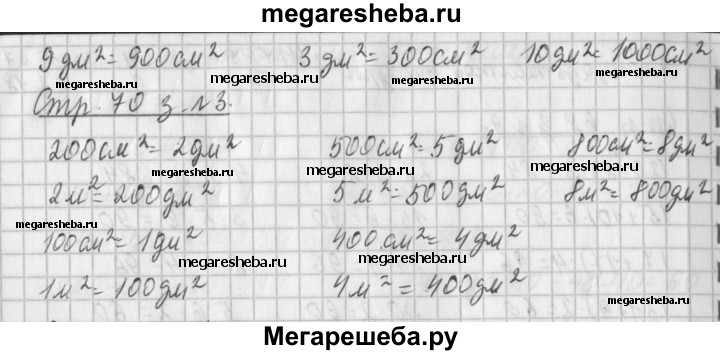 megaresheba.ru
9 дм²= 900см² 3 дм²= 300см² 10дм²= 1000см²
megaresheba.ru megaresheba.ru megaresheba.ru
Стр. 70 з. №3.
200см²= 2дм² 500см²= 5дм² 800см²= 8дм²
megaresheba.ru megaresheba.ru megaresheba.ru
2м²= 200дм² 5м²= 500дм² 8м²= 800дм²
megaresheba.ru megaresheba.ru megaresheba.ru
100см²= 1дм² 400см²= 4дм²
megaresheba.ru megaresheba.ru
1м²= 100дм² 4м²= 400дм²
megaresheba.ru
Мегарешеба.ру